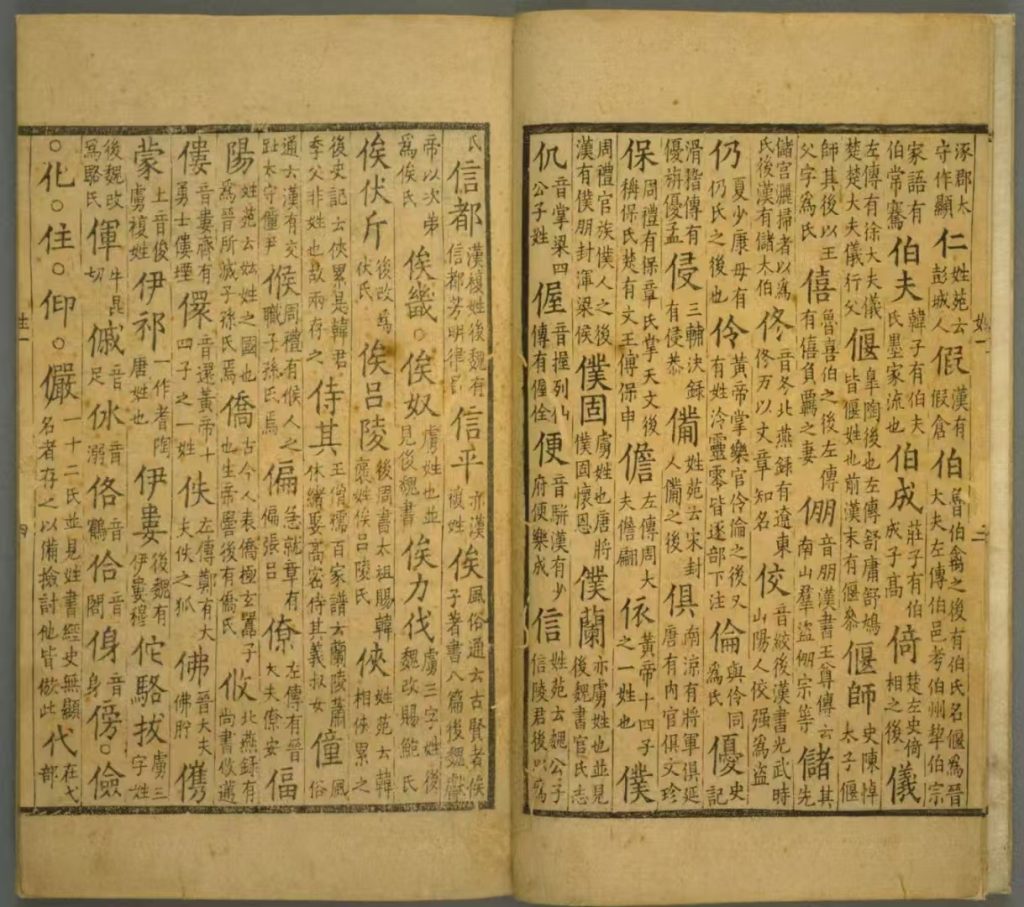 涿郡太守作顯 仁 姓苑云彭城人 假 漢有假倉 伯 魯伯禽之後有伯氏名偃爲晉大夫左傳伯邑考伯州犂伯宗
家語有伯常騫 伯夫 韓子有伯夫氏墨家流也 伯成 莊子有伯成子高 倚 楚左史倚相之後 儀
左傳有徐大夫儀楚楚大夫儀行父 偃 臯陶後也左傳舒庸舒鳩皆偃姓也前漢末有偃參 偃師 史陳悼太子偃
師其後以王父字爲氏 僖 魯喜伯之後左傳有僖負羈之妻 倗 音朋漢書王尊傳云南山羣盜倗宗等 儲 其先
儲宮灑掃者以爲氏後漢有儲太伯 佟 音冬北燕錄有遼東佟万以文章知名 佼 音絞後漢書光武時山陽人佼强爲盜
仍 夏少康母有仍氏之後也 伶 黃帝掌樂官伶倫之後又有姓泠靈零皆逐部下注 倫 與伶同爲氏 優 史記
滑指傳有優旃優孟 侵 三輔決錄有侵恭 備 姓苑云宋封人備之後 俱 南涼有將軍俱延唐有内官俱文珍
保 周禮有保章氏掌天文後稱保氏楚有文王傅保申 儋 左傳周大夫儋翩 依 黃帝十四子之一姓也 僕
周禮官族僕人之後漢有僕朋封渾渠侯 僕固 虜姓也唐將僕固懷恩 僕蘭 亦虜姓也並見後魏書官氏志
仉 音掌梁四公子姓 偓 音握列仙傳有偓佺 便 音駢漢有少府便樂成 信 姓苑云魏公子信陵君後以爲
氏 信都 漢複姓後魏有信都芳明律曆 信平 亦漢複姓 俟 風俗通云古賢者俟子著書八篇後魏獻
帝以次弟爲俟氏 俟畿○俟奴 虜姓也並見後魏書 俟力伐 虜三字姓後魏改賜鮑氏
俟伏斤 後改爲伏氏 俟呂陵 後周書太祖賜韓襃姓俟呂陵氏 俠 姓苑云韓相俠累之
後史記云俠累是韓君季父非姓也故兩存之 侍其 王僧孺百家譜云蘭陵蕭休緒娶高密侍其義叔女 僮 風俗
通云漢有交趾太守僮尹 候 周禮有候人之職子孫氏焉 偏 急就章有偏張呂 僚 左傳有晉大夫僚安 偪
陽 姓苑云妘姓之國也爲晉所滅子孫氏焉 僑 古今人表僑極玄囂子也生帝嚳後有僑氏 攸 北燕錄有尚書攸邁
僂 音婁齊有勇士僂堙 儇 音還黃帝十四子之一姓 佚 左傳鄭有大夫佚之狐 佛 晉大夫佛肹 儁
蒙 上音俊虜複姓 伊祁 一作者陶唐姓也 伊婁 後魏有伊婁穆 佗駱拔 虜三字姓
後魏改爲駱氏 倱 牛昆切 傶 音足 㲻 音溺 佫 音鶴 佮 音閤 㑗 音身 傍○儉
○化○住○仰○儼 一十二氏並見姓書經史無顯名者存之以備撿討他皆倣此 代 在弋部